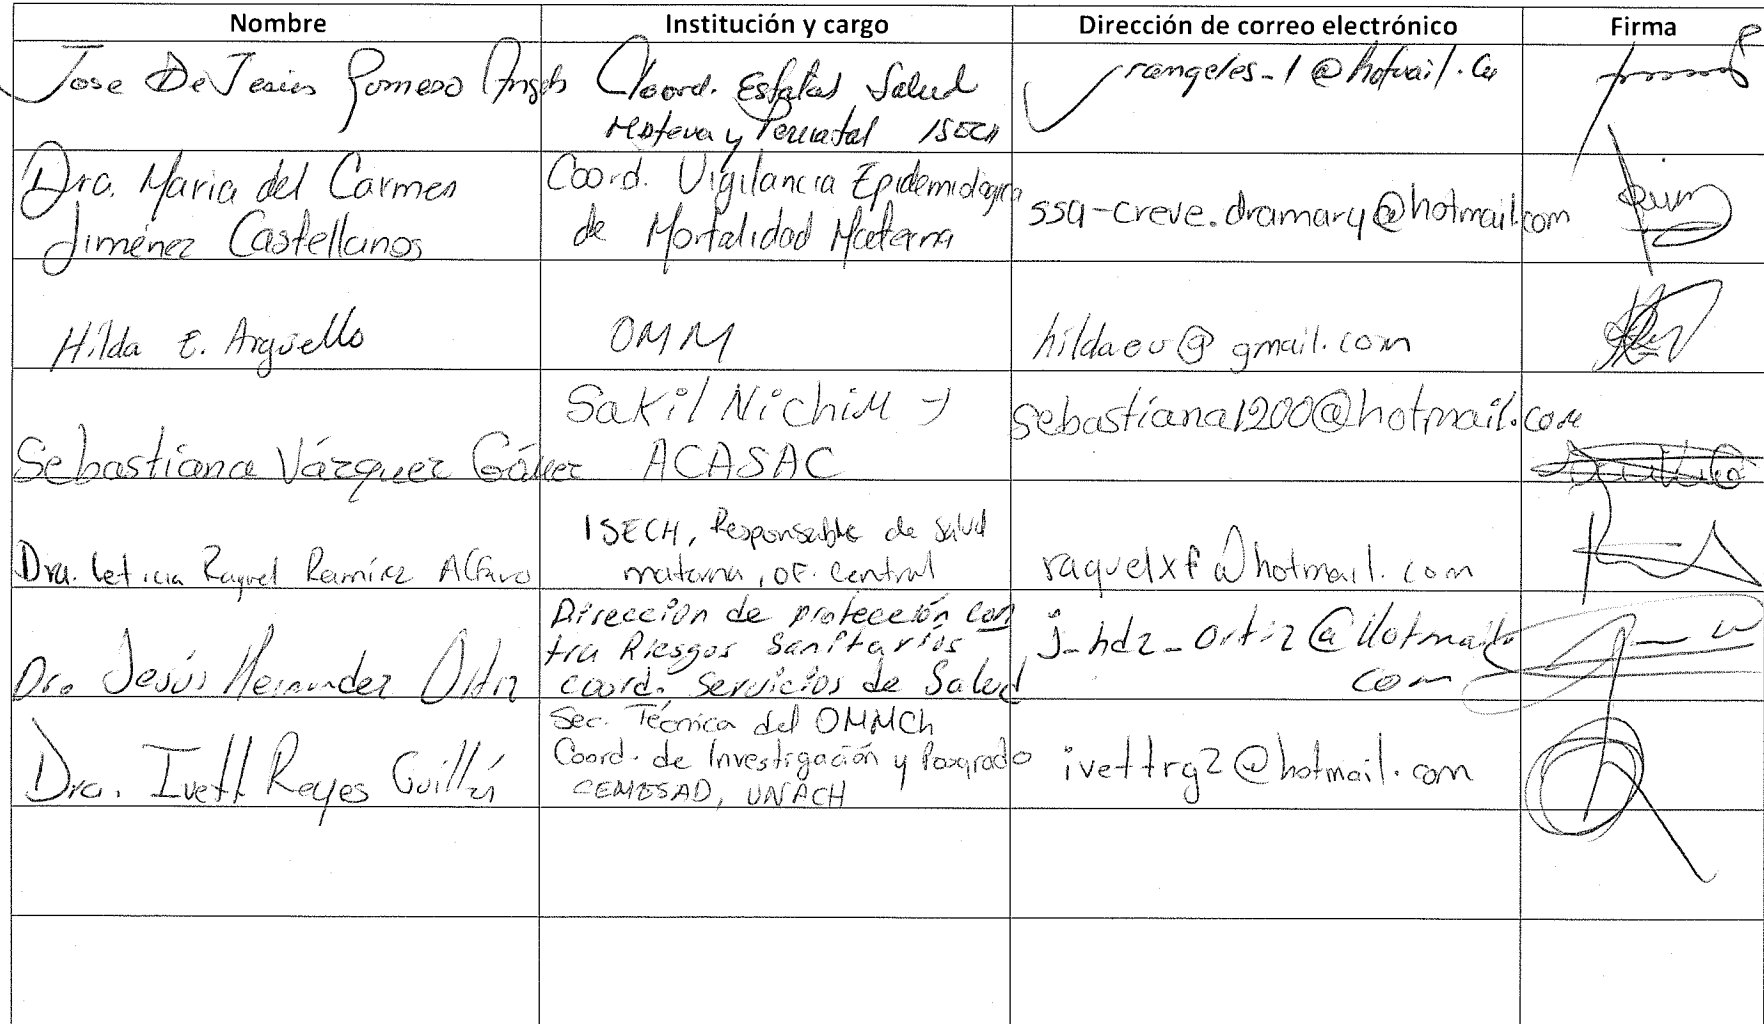 Nombre Institución y cargo Dirección de correo electrónico Firma
Jose De Jesús Romero Angeles
Coord. Estatal Salud
Materna y Perinatal ISECH
jrangeles_1@hotmail.com
Dra. Maria del Carmen
Jiménez Castellanos
Coord. Vigilancia Epidemiologica
de Mortalidad Materna
ssa-creve.dramary@hotmail.com
Hilda E. Argüello
OMM
hildaeu@gmail.com
Sebastiana Vázquez Gómez
Sakil Nichim
ACASAC
sebastiana1200@hotmail.com
Dra. Leticia Raquel Ramírez Alfaro
ISECH, Responsable de salud
materna, OF. central
raquelxf@hotmail.com
Dr. Jesús Hernandez Ortiz
Dirección de protección con
tra Riesgos Sanitarios
coord. Servicios de Salud
j_hdz_ortiz@Hotmail.
com
Dra. Ivett Reyes Guillén
Sec. Técnica del OMMCh
Coord. de Investigación y Posgrado
CEMESAD, UNACH
ivettrg2@hotmail.com